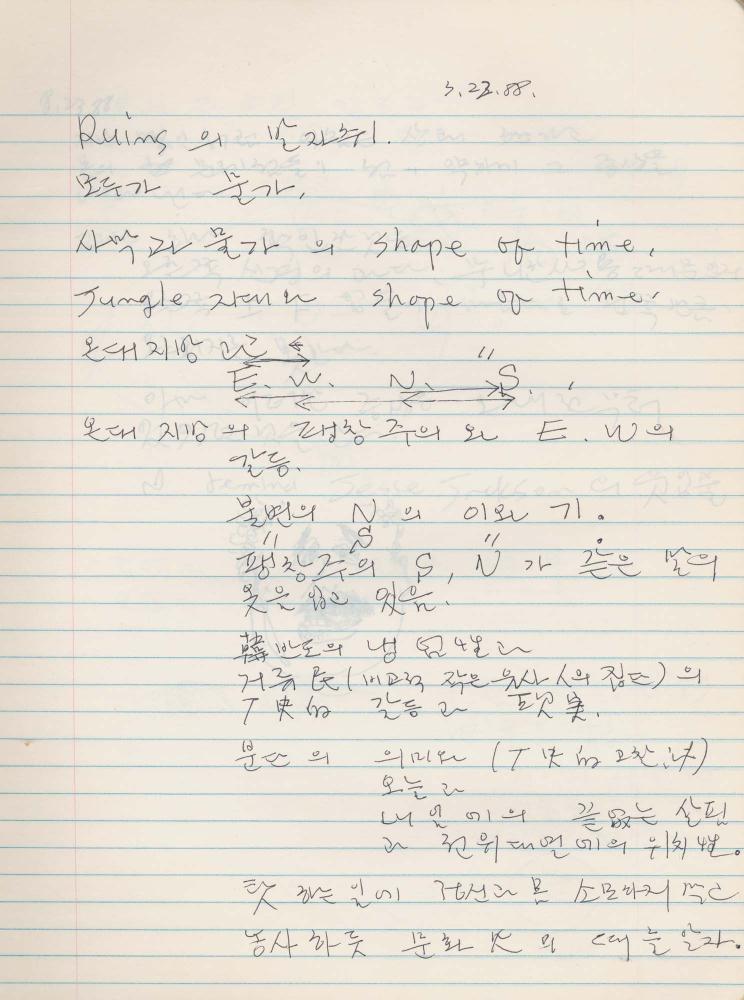 3.23.88.
Ruins 의 발자취.
모두가 물가.
사막과 물가의 shape of time.
Jungle 지대와 shape of time.
온대지방 과
E. W. N. 〃 S.
온대지방의 팽창주의 와 E. W의
갈등.
불변의 N의 이와 기.
〃 S 〃
팽창주의 S, N가 같은 말의
옷을 입고 있음.
韓반도의 냉 性과
거류民(비교적 작은 유사人의 집단)의
갈등과 현実.
분단의 의미와
오늘과
내일에의 끝없는 살핌
과 전위대열에의 위치性.
하는일에 정신과 몸 소모하지 말고
농사하듯 문화 의 때를 알자.